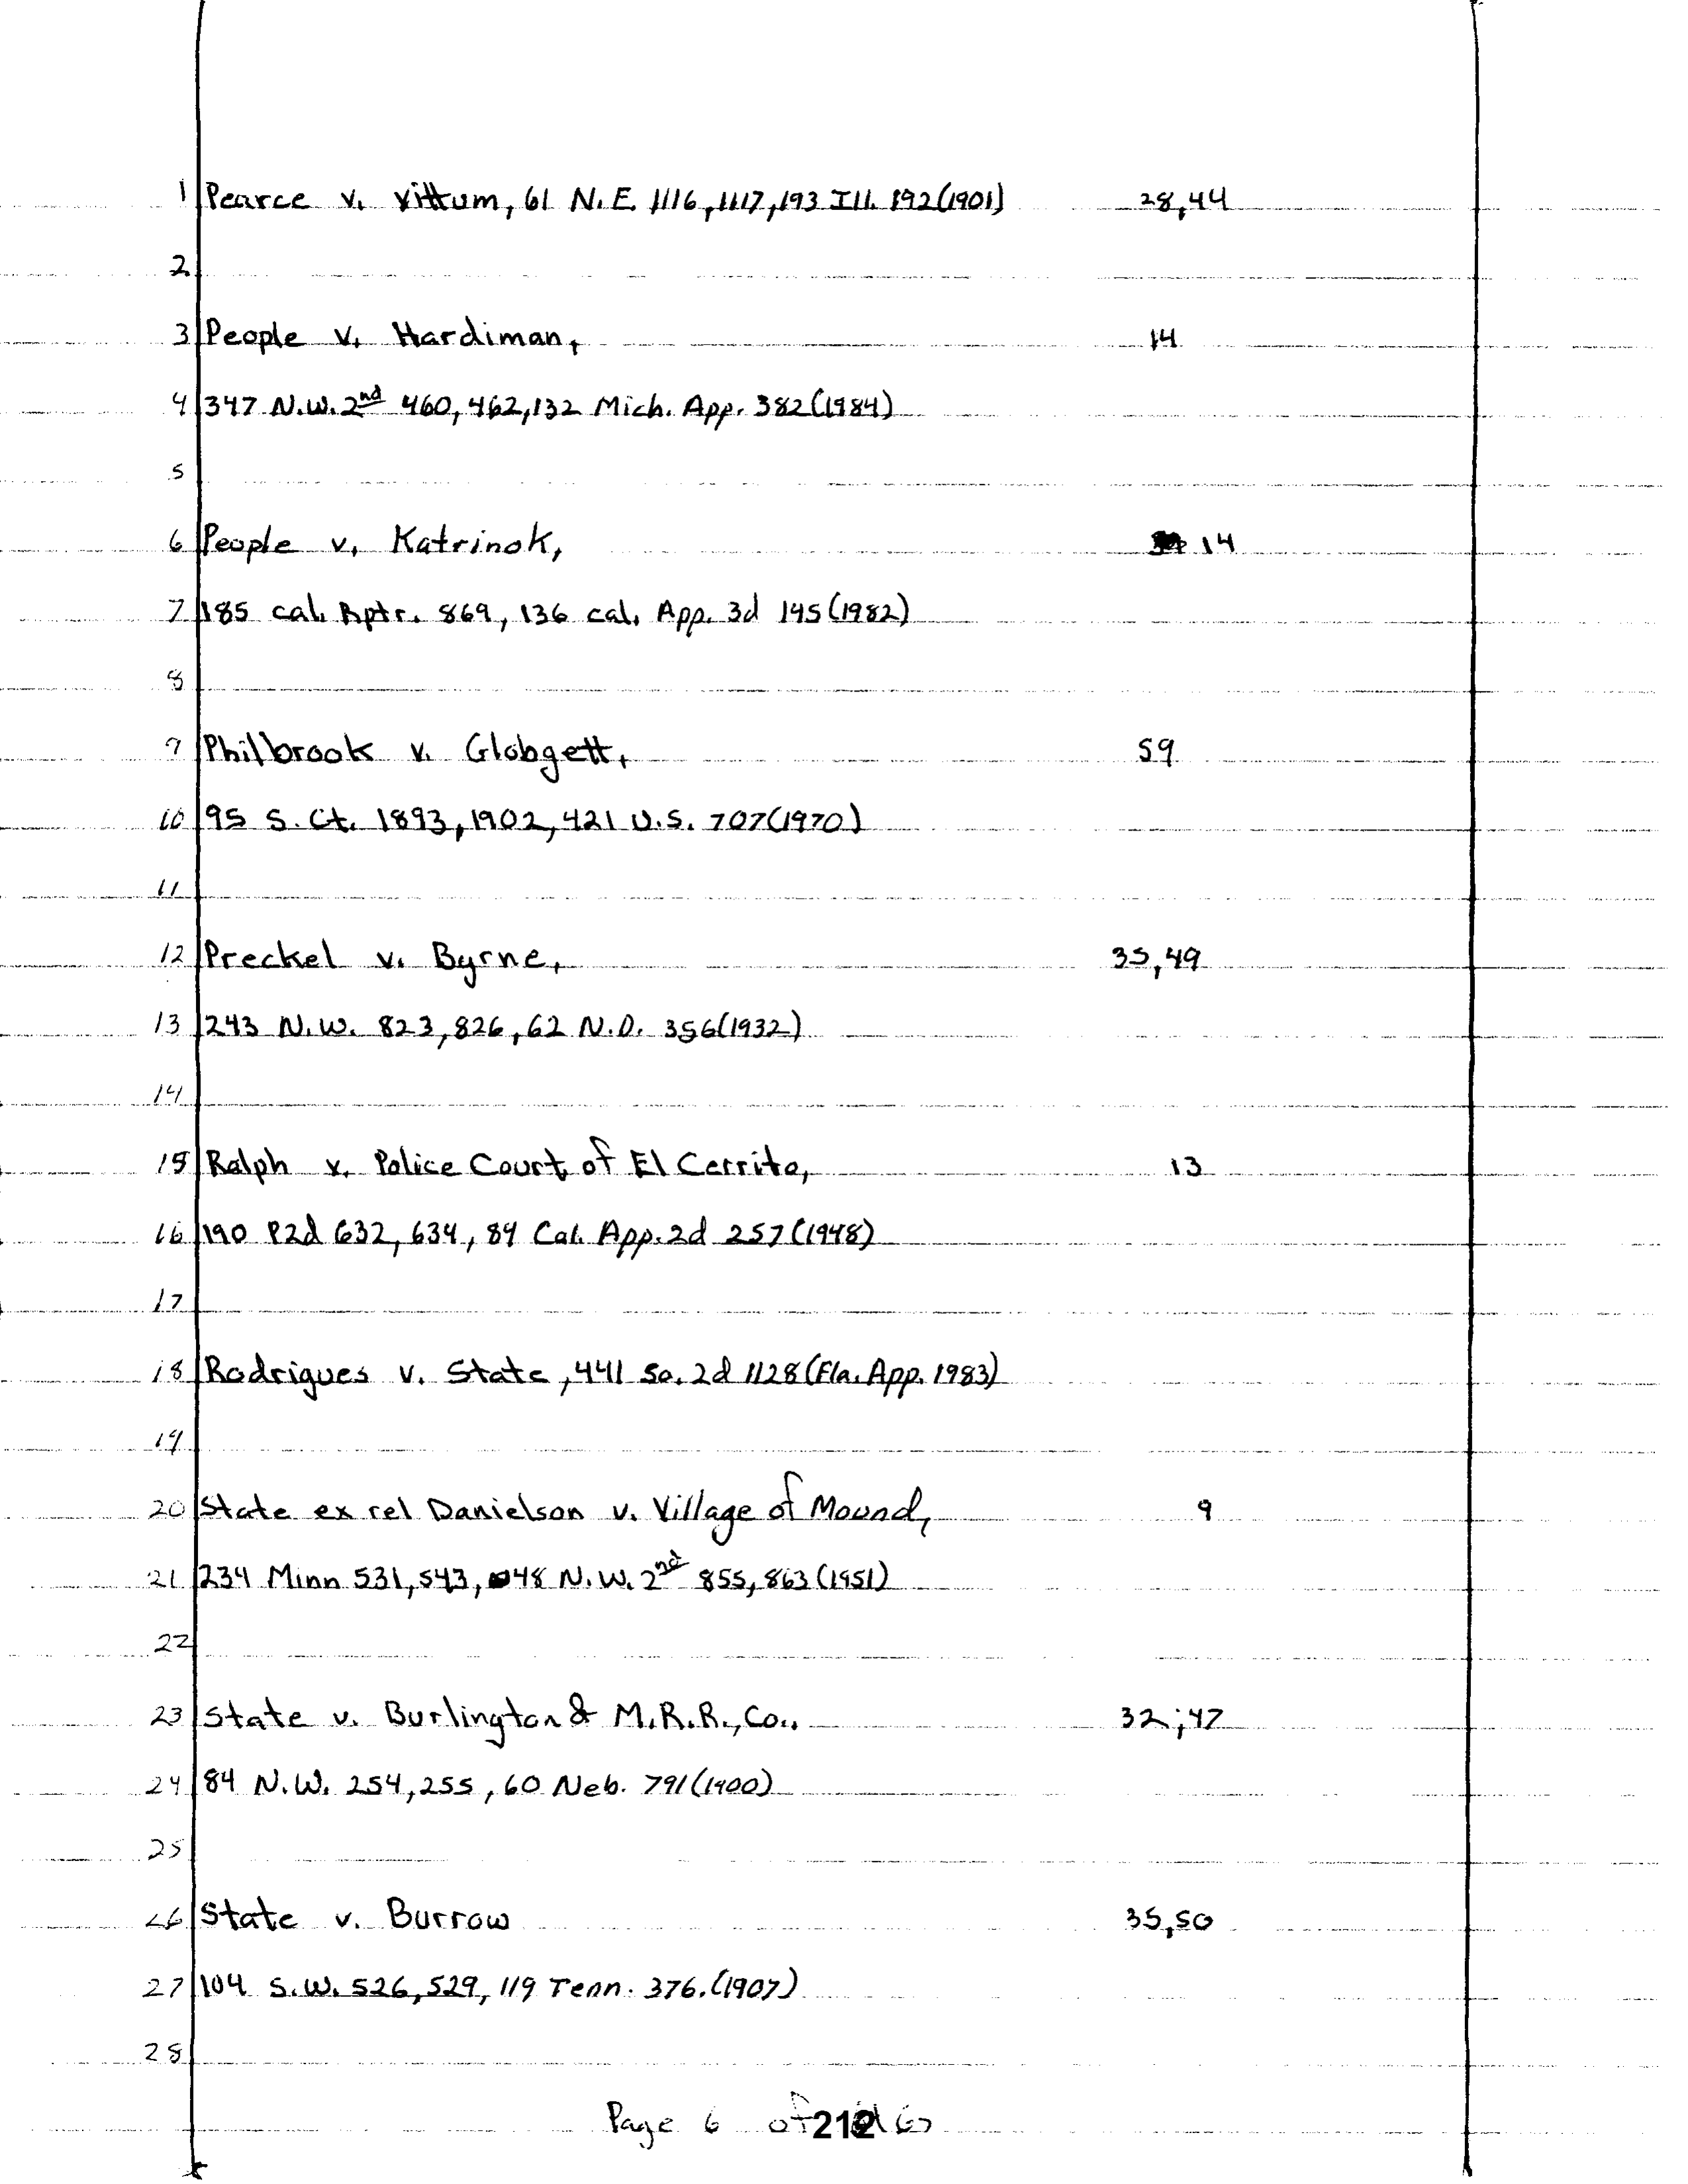 1 Pearce v. Vittum, 61 N.E. 1116, 1117, 193 Ill. 192(1901) 28,44
2
3 People v. Hardiman, 14
4 347 N.W. 2nd 460, 462, 132 Mich. App. 382(1984)
5
6 People v. Katrinok, 14
7 185 cal. Rptr. 869, 136 cal. App. 3d 145(1982)
8
9 Philbrook v. Globgett, 59
10 95 S. Ct. 1893, 1902, 421 U.S. 707(1970)
11
12 Preckel v. Byrne, 35,49
13 243 N.W. 823, 826, 62 N.D. 356(1932)
14
15 Ralph v. Police Court of El Cerrito, 13
16 190 P2d 632, 634, 84 Cal. App. 2d 257(1948)
17
18 Rodrigues v. State, 441 So. 2d 1128 (Fla. App. 1983)
19
20 State ex rel Danielson v. Village of Mound, 9
21 234 Minn 531, 543, 48 N.W. 2nd 855, 863(1951)
22
23 State v. Burlington & M.R.R., Co., 32;47
24 84 N.W. 254, 255, 60 Neb. 791(1900)
25
26 State v. Burrow 35,50
27 104 S.W. 526, 529, 119 Tenn. 376.(1907)
28
Page 6 of 212